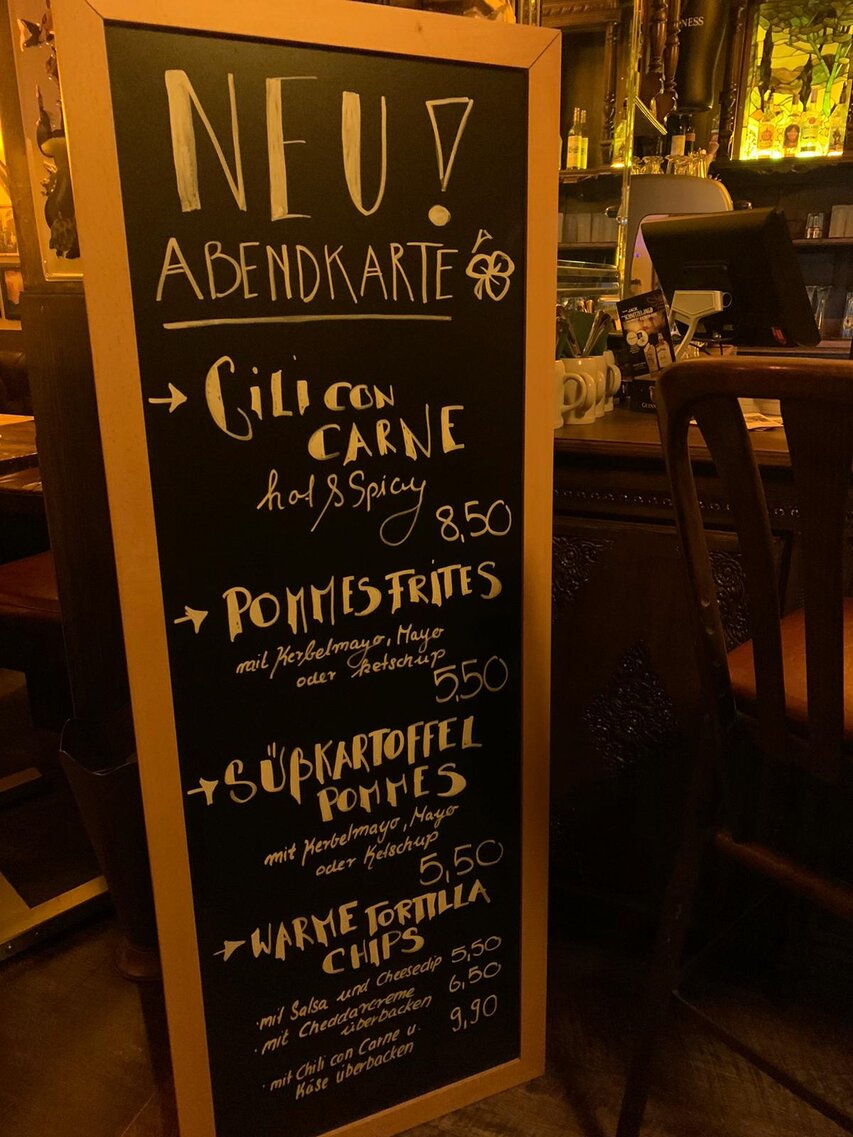 NEU!
ABENDKARTE
→ CiLi CON
CARNE
hot & Spicy
8,50
→ POMMES FRiTES
mit Kerbelmayo, Mayo
oder Ketschup
5,50
→ SÜßKARTOFFEL
POMMES
mit Kerbelmayo, Mayo
oder Ketschup
5,50
→ WARME TORTILLA
CHIPS
· mit Salsa und Cheesedip 5,50
· mit Cheddarcreme
überbacken 6,50
· mit Chili con Carne u.
Käse überbacken 9,90
NESS